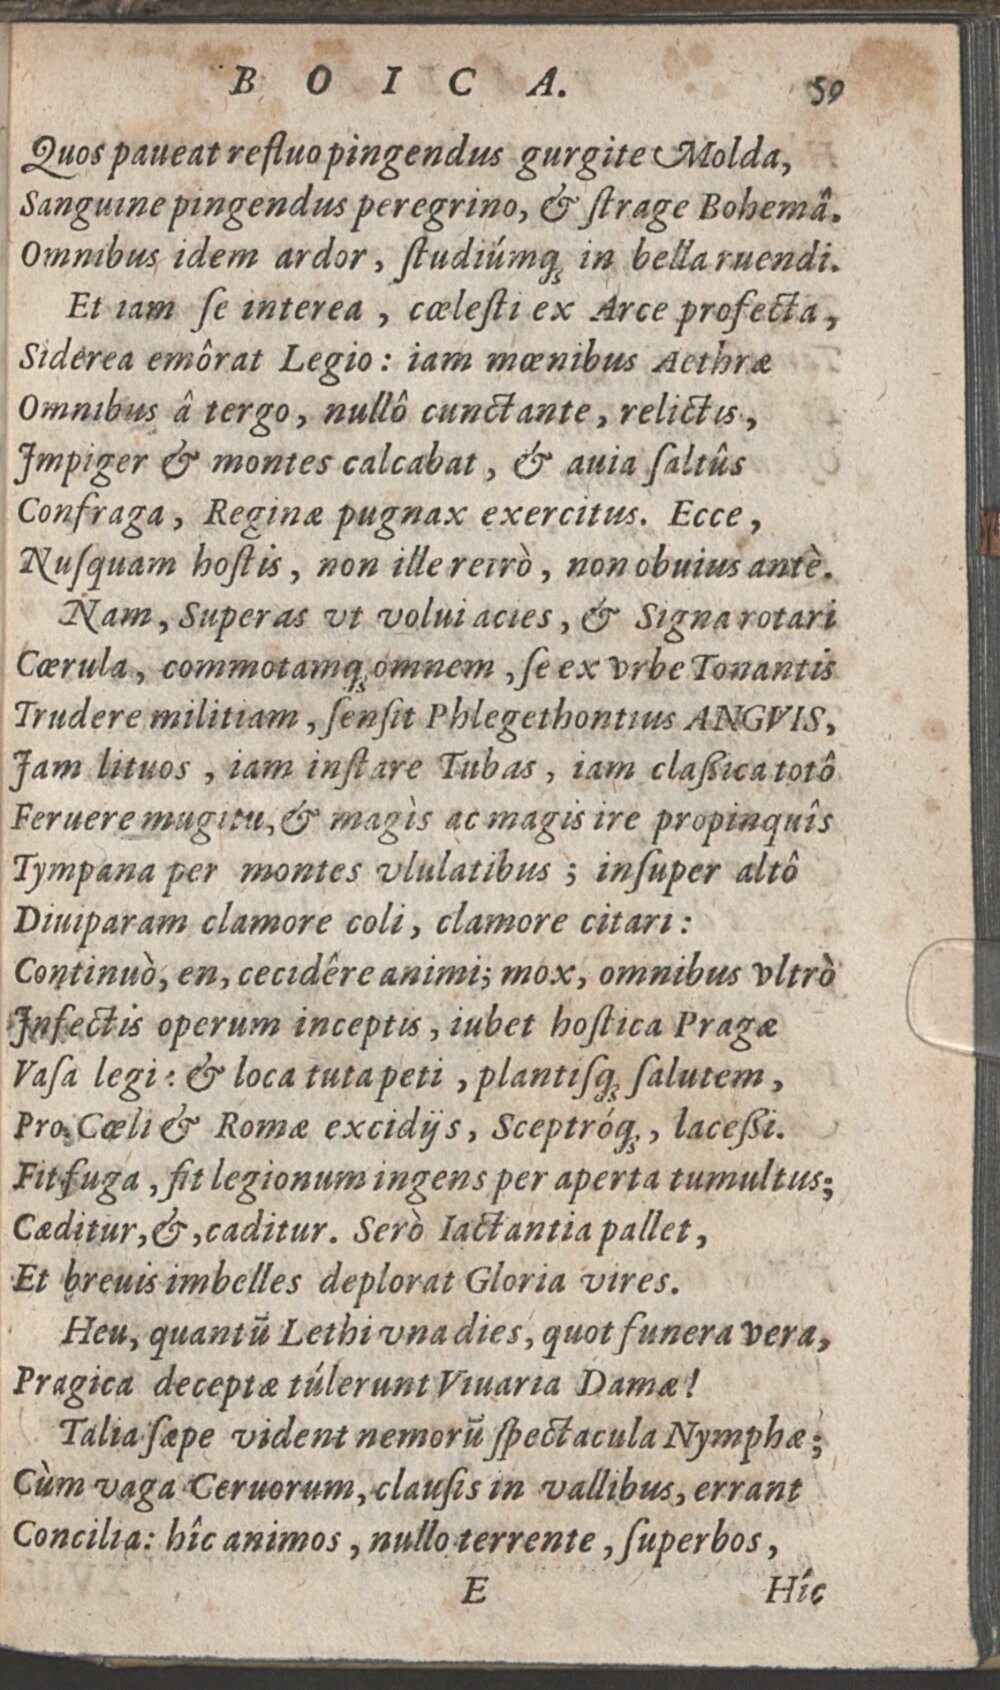 BOICA. 59
Quos paueat refluo pingendus gurgite Molda,
Sanguine pingendus peregrino, & ſtrage Bohemâ.
Omnibus idem ardor, ſtudiúmq́ꝫ in bella ruendi.
Et iam ſe interea, cœleſti ex Arce profecta,
Siderea emôrat Legio: iam mœnibus Aethræ
Omnibus â tergo, nullô cunctante, relictis,
Impiger & montes calcabat, & auia ſaltûs
Confraga, Reginæ pugnax exercitus. Ecce,
Nuſquam hoſtis, non ille retrò, non obuius antè.
Nam, Superas vt volui acies, & Signa rotari
Cœrula, commotamqꝫ omnem, ſe ex vrbe Tonantis
Trudere militiam, ſenſit Phlegethontius ANGVIS,
Jam lituos, iam inſtare Tubas, iam claßica totô
Feruere mugitu, & magìs ac magis ire propinquîs
Tympana per montes vlulatibus; inſuper altô
Diuiparam clamore coli, clamore citari:
Continuò, en, cecidêre animi; mox, omnibus vltrò
Jnfectis operum inceptis, iubet hoſtica Pragæ
Vaſa legi: & loca tuta peti, plantiſqꝫ ſalutem,
Pro Cœli & Romæ excidijs, Sceptróqꝫ, laceßi.
Fit fuga, fit legionum ingens per aperta tumultus;
Cæditur, &, caditur. Serò Iactantia pallet,
Et breuis imbelles deplorat Gloria vires.
Heu, quantū Lethi vna dies, quot funera vera,
Pragica deceptæ túlerunt Viuaria Damæ!
Talia ſæpe vident nemorū ſpectacula Nymphæ;
Cùm vaga Ceruorum, clauſis in vallibus, errant
Concilia: hîc animos, nullo terrente, ſuperbos,
E Hîc